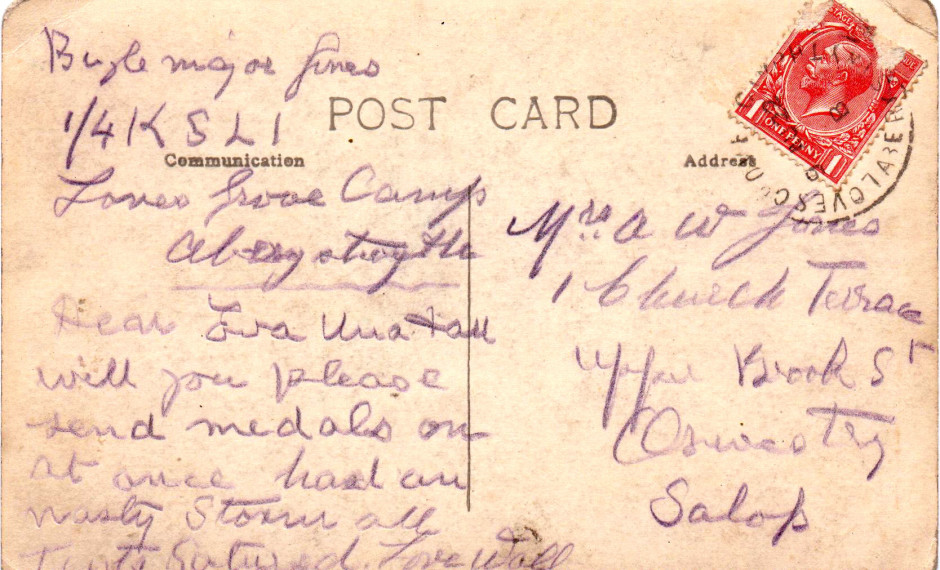 Bugle major Jones
1/4 K S L I
POST CARD
Communication
Loves Grove Camp
Aberystwyth
Dear Eva Una & all
will you please
send medals on
at once had an
nasty Storm all
Tents Love Will
Address
Mrs. A W Jones
1 Church Terrace
Upper Brook St
Oswestry
Salop
ONE PENNY
1
1